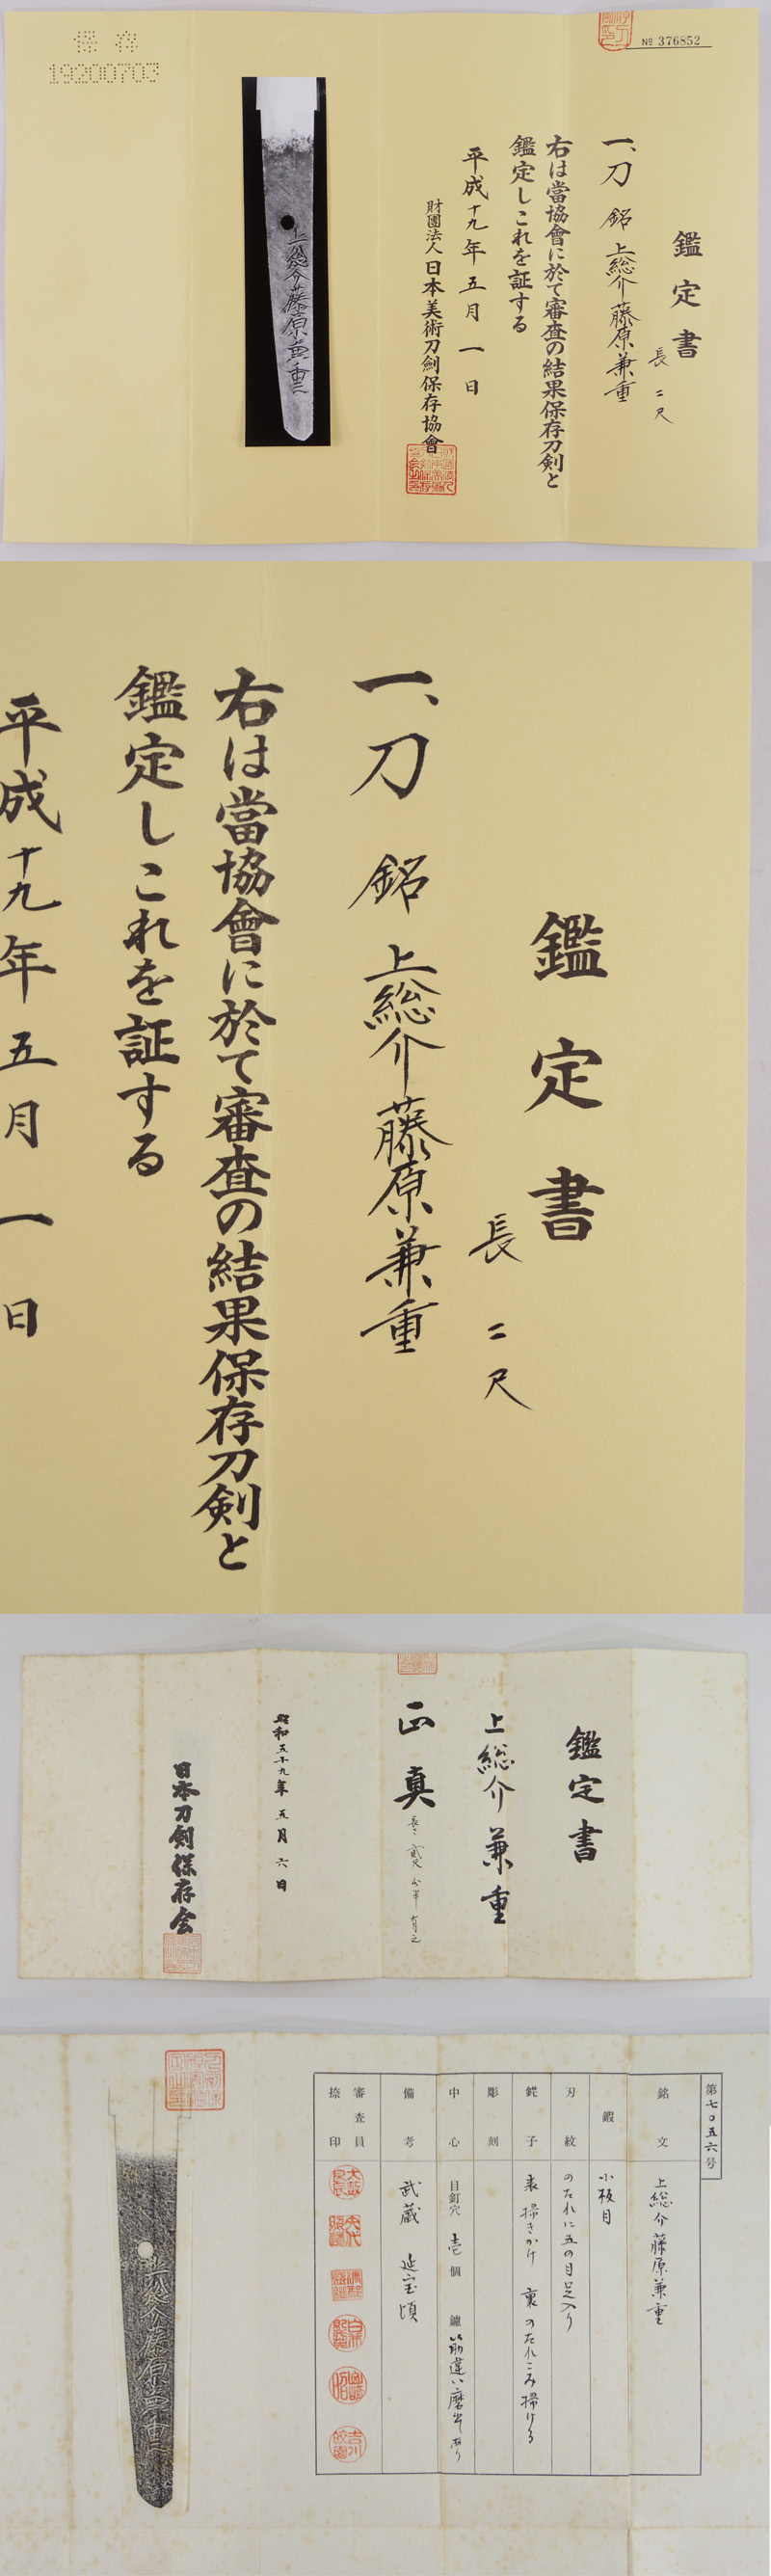 保存
19200703
№ 376852
鑑定書
長 二尺
一、刀 銘 上総介藤原兼重
右は當協會に於て審査の結果保存刀剣と
鑑定しこれを証する
平成十九年五月一日
財團法人日本美術刀劍保存協會
上総介藤原兼重
鑑定書
長 二尺
一、刀 銘 上総介藤原兼重
右は當協會に於て審査の結果保存刀剣と
鑑定しこれを証する
平成十九年五月一日
鑑定書
上総介兼重
正真
昭和五十九年五月六日
日本刀剣保存会
第七〇五六号
銘文 上総介藤原兼重
鍜 小板目
刃紋 のたれに五の目足入り
鋩子 表掃きかけ 裏のたれこみ掃ける
彫刻
中心 目釘穴 壱個 鑢 筋違い磨出あり
備考 武蔵 延宝頃
審査員捺印
上総介藤原兼重